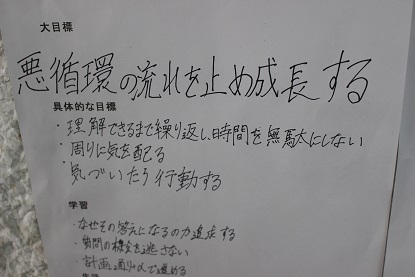 大目標
悪循環の流れを止め成長する
具体的な目標
・理解できるまで繰り返し、時間を無駄にしない
・周りに気を配る
・気づいたら行動する
学習
・なぜその答えになるのか追求する
・質問の機会を逃さない
・計画通りに進める
生活